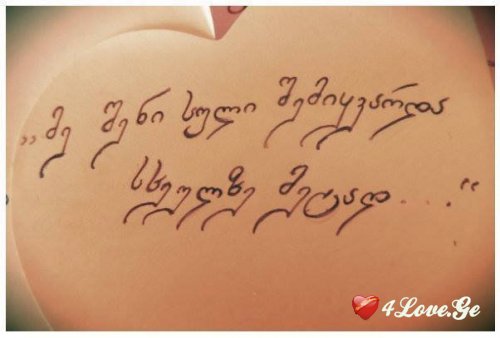 ,,მე შენი სული შემიყვარდა
სხეულზე მეტად...."
4Love.Ge